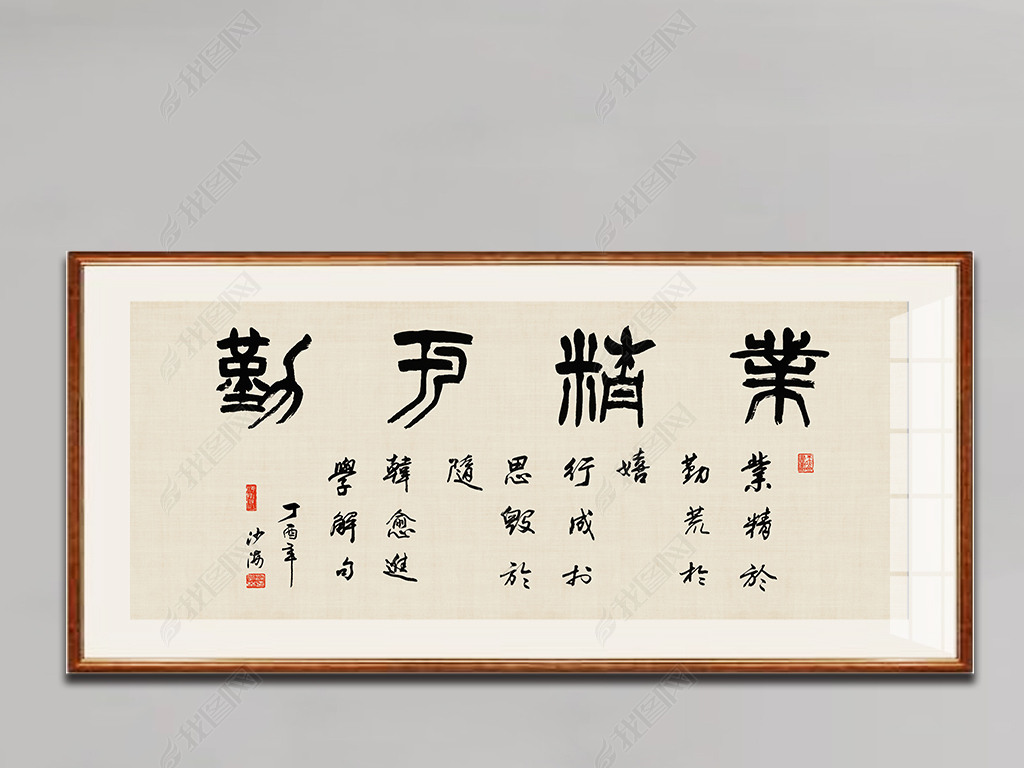 業精于勤
業精於
勤荒於
嬉
行成於
思毀於
隨
韓愈進
學解句
丁酉年
沙海
找图网